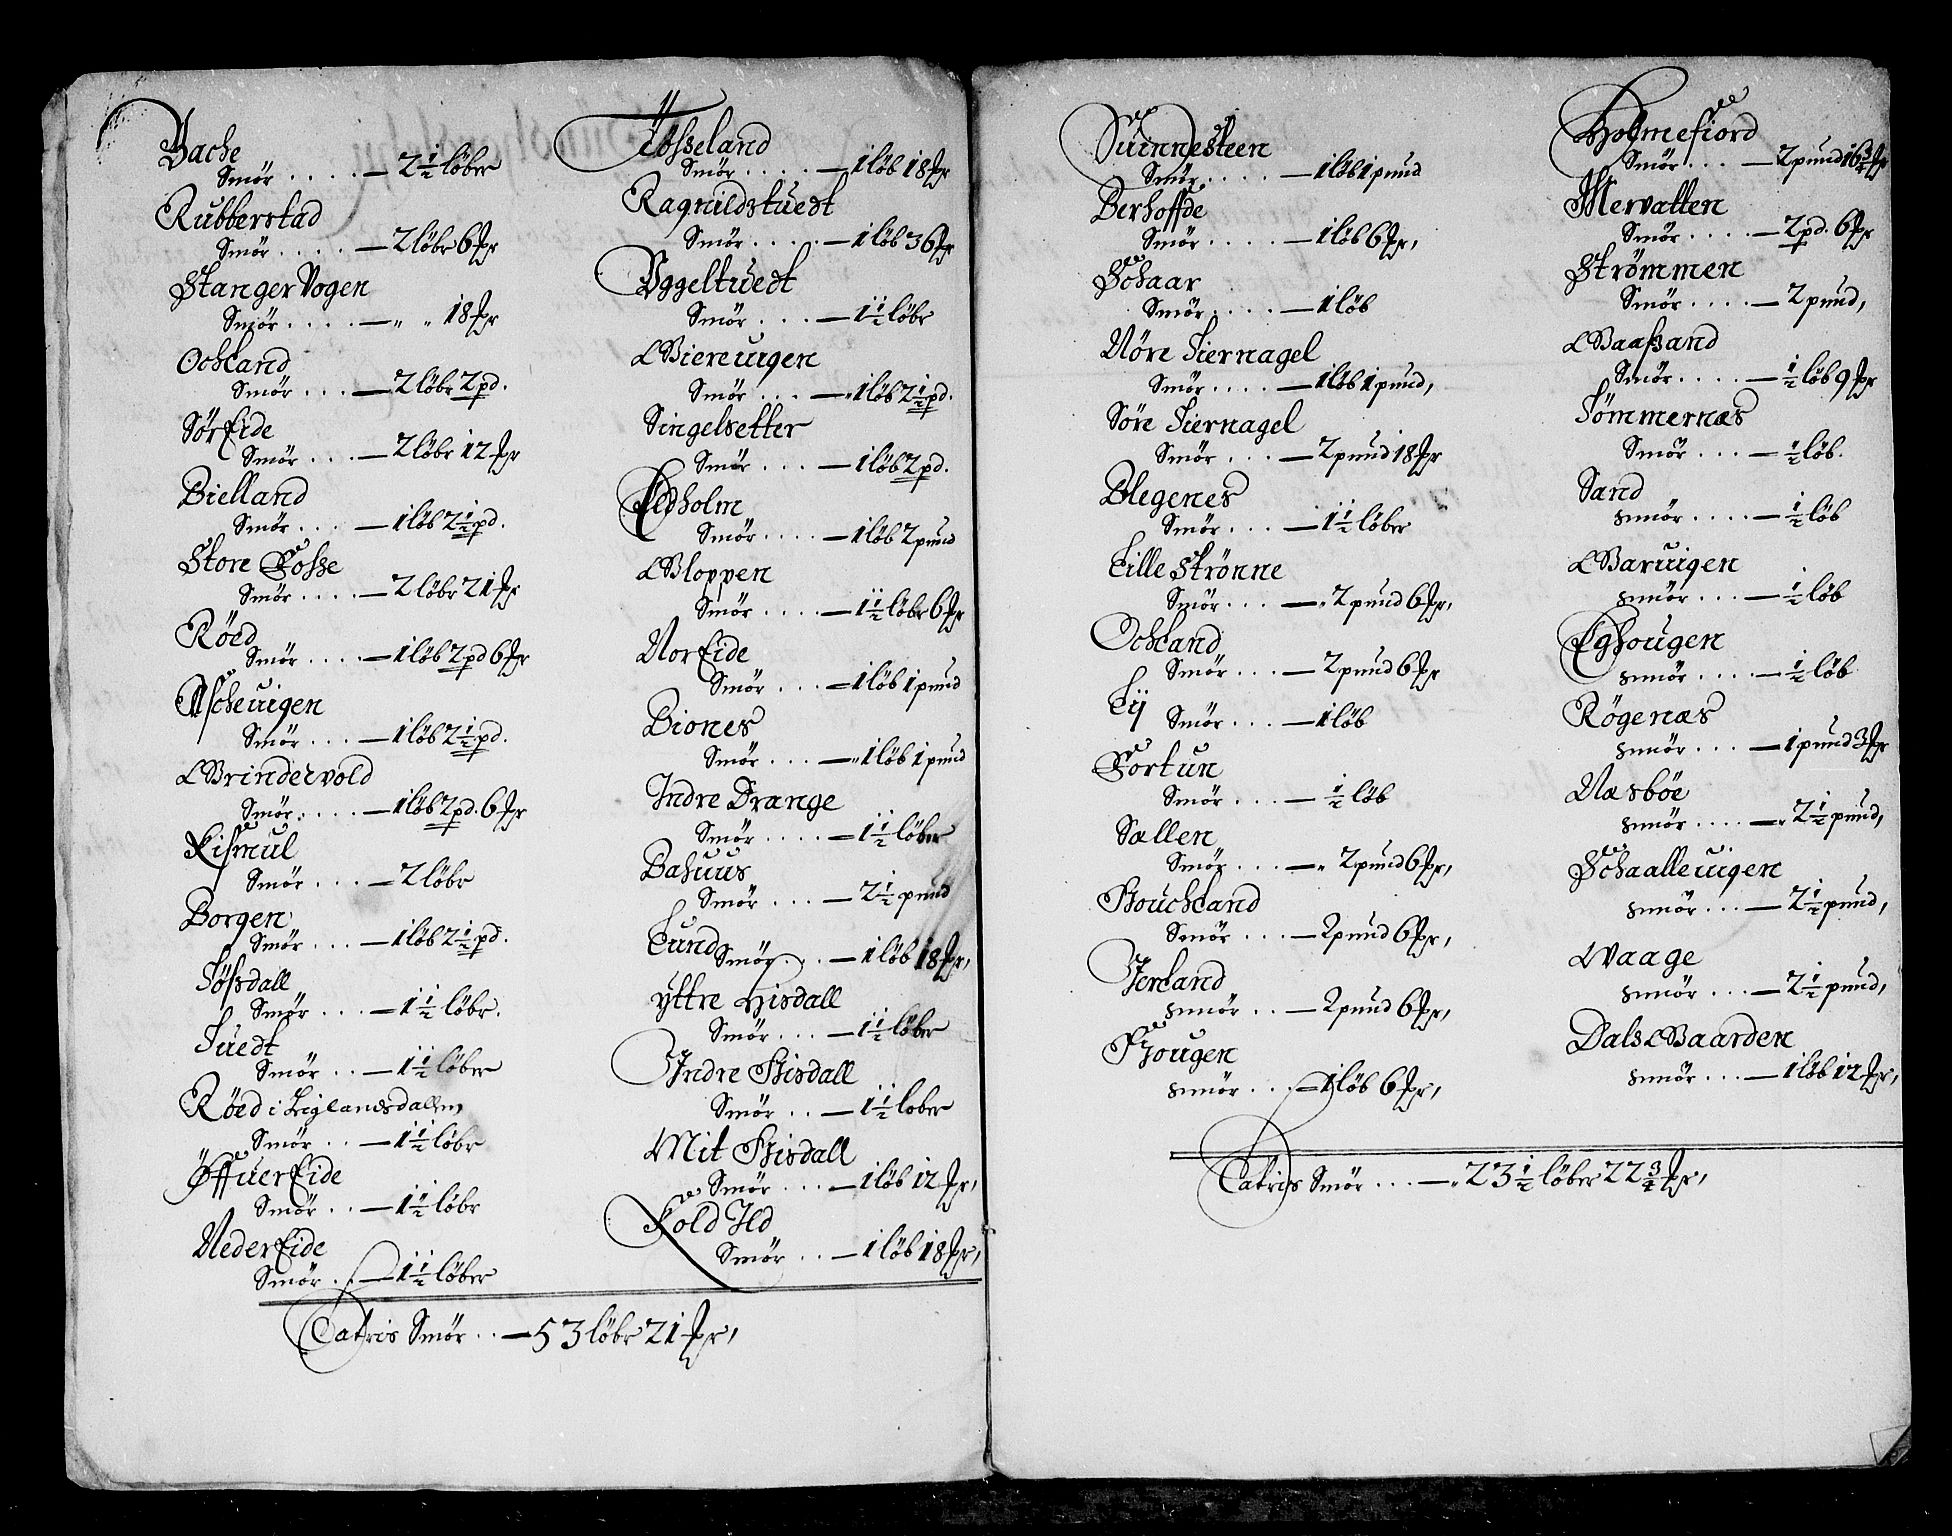 Bache
Smör . . . . — 2 1/2 löber
Rubberstad
Smör . . . . — 2 löbr 6 Pr
Stanger Vogen
Smör . . . . — „ „ 18 Pr
Ochland
Smör . . . — 2 löbr 2 pd.
Sör Eide
Smör . . . — 2 löbr 12 Pr
Bielland
Smör . . . — 1 löb 2 1/2 pd.
Store Fosse
Smör . . . . — 2 löbr 21 Pr
Röed
Smör . . . . — 1 löb 2 pd 6 Pr
Ascheuigen
Smör . . . — 1 löb 2 1/2 pd.
Brindevold
Smör . . . . — 1 löb 2 pd. 6 Pr
Kismul
Smör . . . — 2 löbr
Borgen
Smör . . . — 1 löb 2 1/2 pd.
Tössdall
Smör . . . — 1 1/2 löbr.
Tuedt
Smör . . — 1 1/2 löber
Röed i Liglandsdallen
Smör . . — 1 1/2 löbr
Öffuer Eide
Smör . . — 1 1/2 löbr
Neder Eide
Smör . . — 1 1/2 löber
Tosseland
Smör . . . . — 1 löb 18 Pr
Ragnildstuedt
Smör . . . . — 1 löb 36 Pr
Yggeltuedt
Smör . . . — 1 1/2 löbr
Biereuigen
Smör . . . — „ 1 löb 2 1/2 pd.
Singelsetter
Smör . . . — 1 löb 2 pd.
Eedholm
Smör . . . . — 1 löb 2 pund
Bloppen
Smör . . . — 1 1/2 löbr 6 Pr
Nor Eide
Smör . . . — 1 löb 1 pund
Biones
Smör . . . — „ 1 löb 1 pund
Indre Drange
Smör . . . . — 1 1/2 löber
Bahuus
Smör . . . — 2 1/2 pund
Lund
Smör . . . — 1 löb 18 Pr,
yttre Hisdall
Smör . . . — 1 1/2 löber
Indre Hisdall
Smör . . — 1 1/2 lober
Mit Hisdall
Smör . . . — 1 löb 12 Pr,
Kold Ild
Smör . . — 1 löb 18 Pr,
Latris Smör . . — 53 löbr 21 Pr,
Suinnesteen
Smör . . . . — 1 löb 1 pund
Berhoffde
Smör . . . . — 1 löb 6 Pr,
Schaar
Smör . . . . — 1 löb
Nöre Siernagel
Smör . . . . — 1 löb 1 pund,
Söre Siernagel
Smör . . . — 2 pund 18 Pr
Blegenes
Smör . . . — 1 1/2 löber
Lille Strönne
Smör . . . — „ 2 pund 6 Pr,
Ochland
Smör . . . — 2 pund 6 Pr
Lij
Smör . . . — 1 löb
Fortun
Smör . . . — 1/2 löb
Sallen
Smör . . . — „ 2 pund 6 Pr,
Houchland
Smör . . . — 2 pund 6 Pr,
Jerland
smör . . — 2 pund 6 Pr,
Hougen
smör . . . — 1 löb 6 Pr,
Holmefiord
Smör . . . — 2 pund 16 1/2 Pr
Mervatten
Smör . . . . — 2 pd. 6 Pr
Strømmen
Smör . . . . — 2 pund,
Baassand
Smör . . . . — 1/2 löb 9 Pr
Tömmernæs
Smör . . . — 1/2 löb.
Sand
smör . . . . — 1/2 löb
Baruigen
smör . . . — 1/2 löb
Eghougen
smör . . . . — 1/2 löb
Rögenæs
smör . . . — 1 pund 3 Pr
Næsböe
smör . . . . — „ 2 1/2 pund,
Schaalleuigen
smör . . . — 2 1/2 pund,
Vaage
smör . . . — 2 1/2 pund,
Dals Baarden
smör . . . — 1 löb 12 Pr,
Latris Smör . . . — „ 23 1/2 löber 22 3/4 Pr,